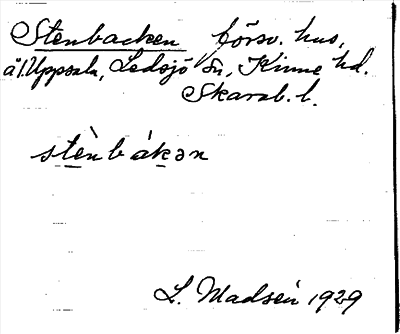 Stenbacken försv. hus,
å l. Uppsala, Ledsjö sn, Kinne hd.
Skarab. l.
stènbákən
L. Madsén 1929